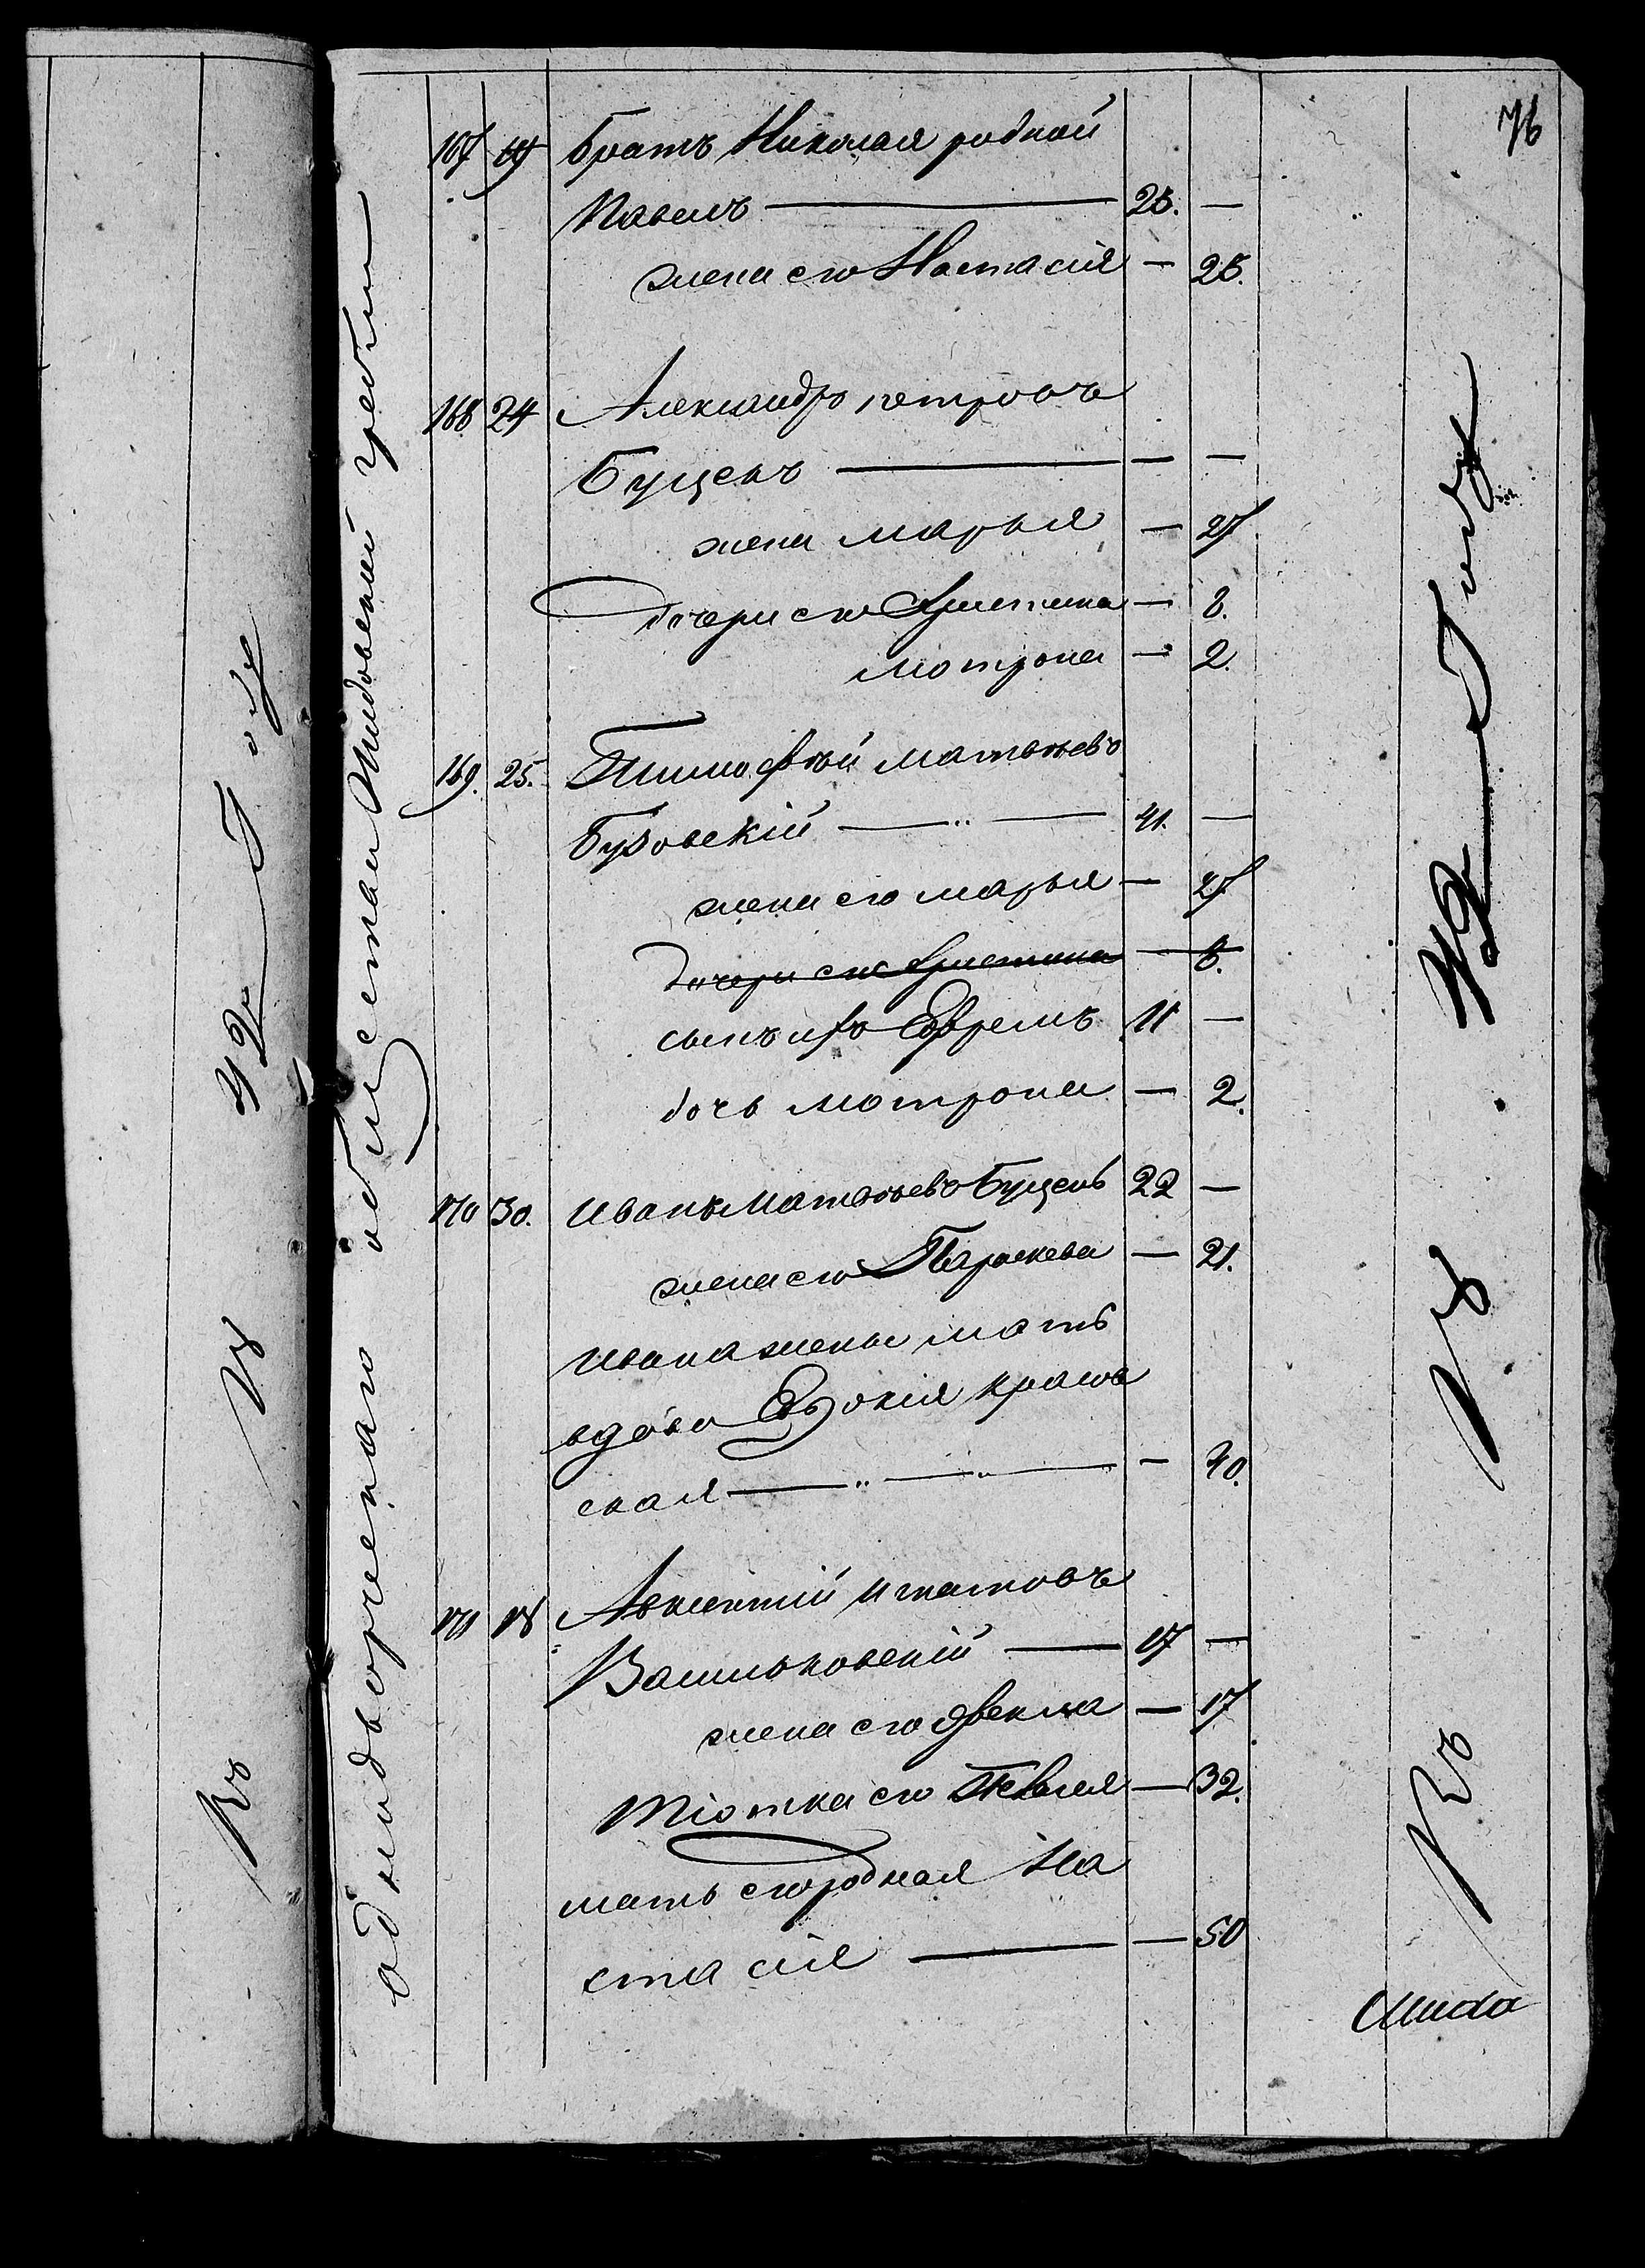 76
167 19 Братъ Николая родной
Павелъ — 25. —
жена его Настасія — 25.
168 24 Александръ Петровъ
Буцень — — —
жена Марья — 27
дочери его Христина — 8.
Мотрона — 2.
169. 25. Тимофѣй Матвѣевъ
Бузовскій — 41. —
жена его Марья — 27
дочери его Христина — 8.
сынъ ихъ Ефремъ 11 —
дочь Мотрона — 2.
170 30. Иванъ Матвѣевъ Буцень 22 —
жена его Параскева — 21.
Ивана жены мать
вдова Евдокія Крашев
ская — — 40.
171 18 Авксентій Игнатовъ
Васильковскій — 17 —
жена его Фекла — 17
Тіотка его — 32.
мать его родная На
стасія — 50
однодворческаго общества Жидовской Гребли
Въ 18 42 Году
Въ 18 42 Году